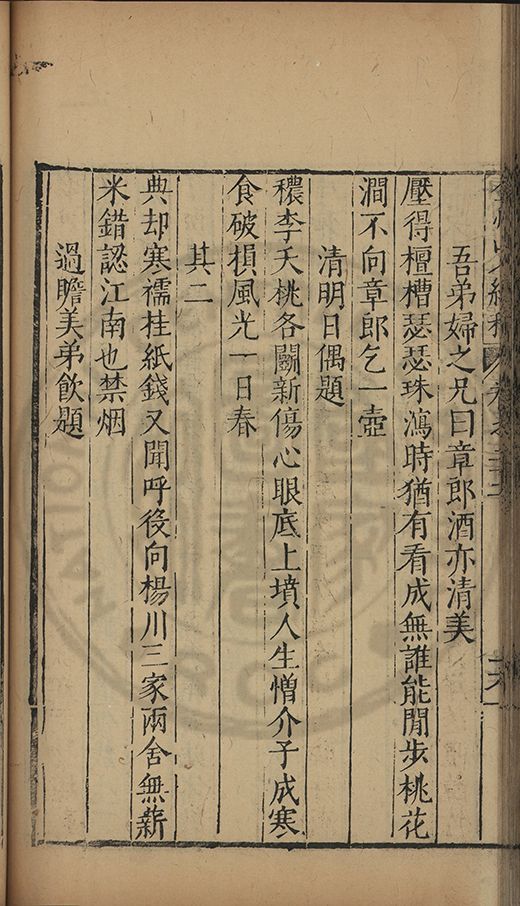 吾弟婦之兄曰章郎酒亦清美
壓得檀槽瑟瑟珠瀉時猶有看成無誰能閒步桃花
澗不向章郎乞一壺
清明日偶題
穠李夭桃各鬭新傷心眼底上墳人生憎介子成寒
食破損風光一日春
其二
典却寒襦挂紙錢又聞呼役向楊川三家兩舍無薪
米錯認江南也禁烟
過瞻美弟飲題